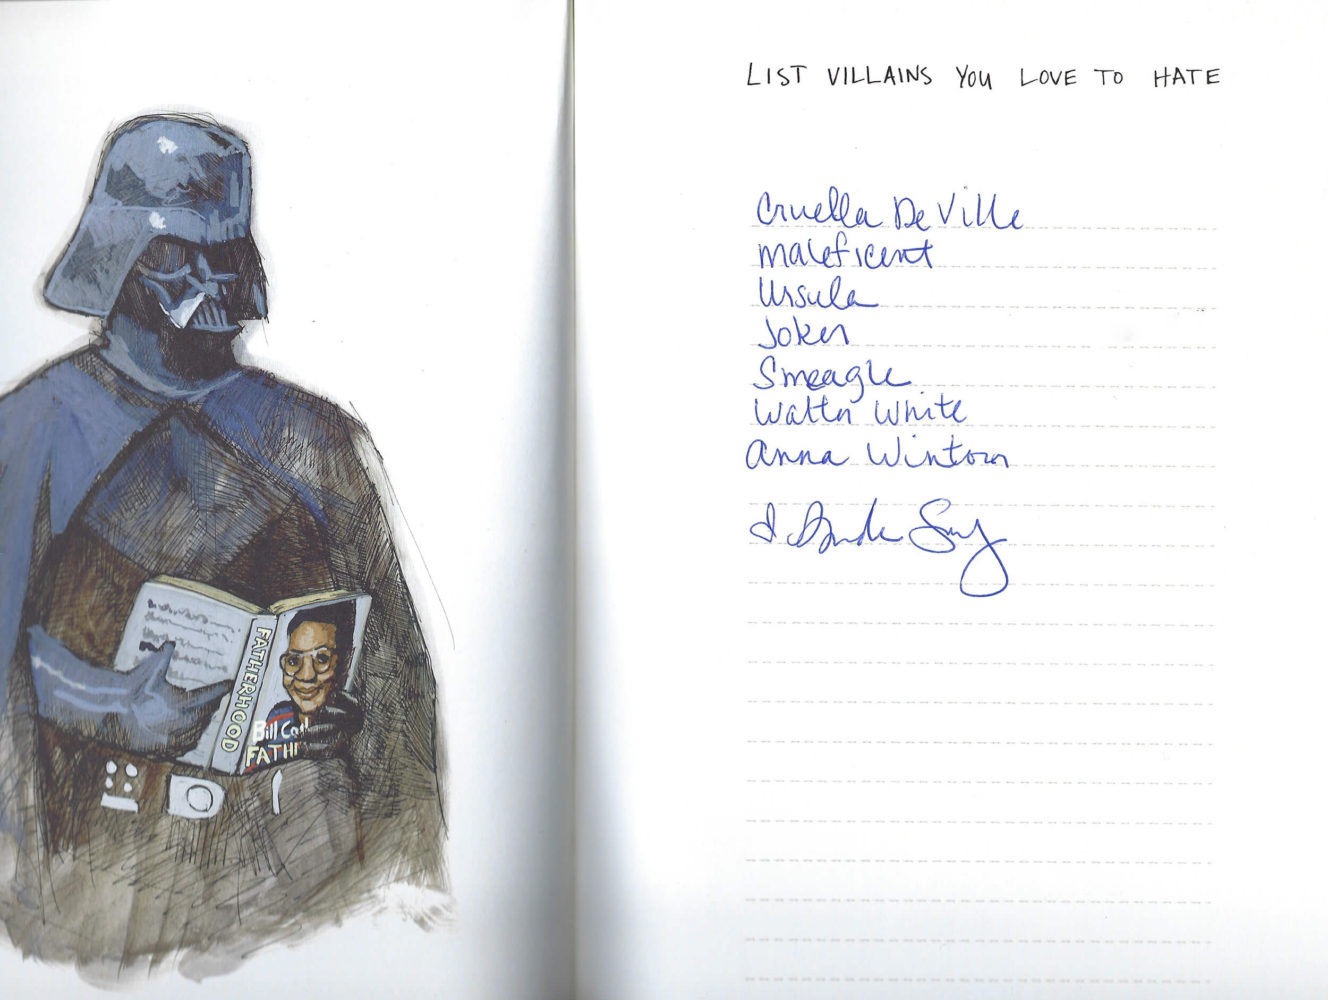 FATHERHOOD
Bill Cos
FATH
LIST VILLAINS YOU LOVE TO HATE
Cruella De Ville
maleficent
Ursula
Joker
Smeagle
Walter White
Anna Wintour
&